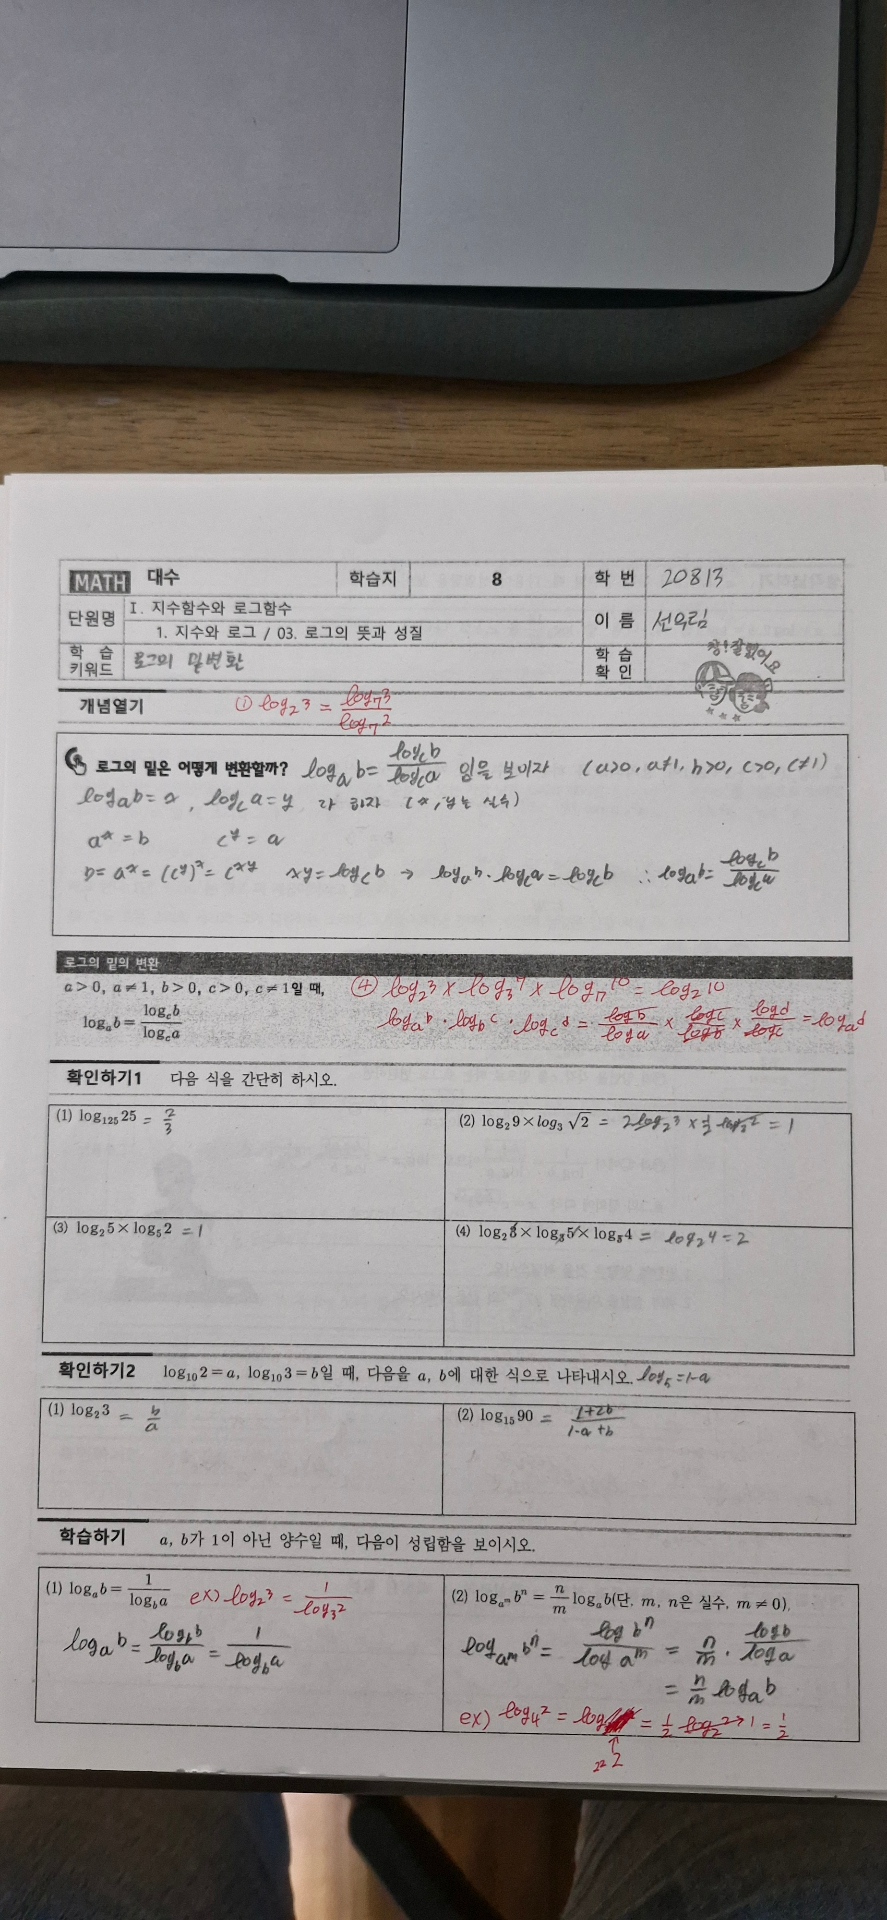 MATH 대수 학습지 8 학 번 20813
단원명 I. 지수함수와 로그함수 이 름 선우림
1. 지수와 로그 / 03. 로그의 뜻과 성질
학 습 키워드 로그의 밑변환 학 습 확 인 참!잘했어요
개념열기 ① log₂3 = log₇3/log₇2
로그의 밑은 어떻게 변환할까? logₐb = log_c b/log_c a 임을 보이자 (a>0, a≠1, b>0, c>0, c≠1)
logₐb = x, log_c a = y 라 하자 (x, y는 실수)
aˣ = b cʸ = a
b = aˣ = (cʸ)ˣ = cˣʸ xy = log_c b → logₐb · log_c a = log_c b ∴ logₐb = log_c b/log_c a
로그의 밑의 변환
a>0, a≠1, b>0, c>0, c≠1일 때, ④ log₂3 × log₃7 × log₇10 = log₂10
logₐb = log_c b/log_c a logₐb · log_b c · log_c d = logb/loga × logc/logb × logd/logc = logₐd
확인하기1 다음 식을 간단히 하시오.
(1) log₁₂₅25 = 2/3 (2) log₂9 × log₃√2 = 2log₂3 × 1/2 log₃2 = 1
(3) log₂5 × log₅2 = 1 (4) log₂3 × log₃5 × log₅4 = log₂4 = 2
확인하기2 log₁₀2 = a, log₁₀3 = b일 때, 다음을 a, b에 대한 식으로 나타내시오. log5 = 1-a
(1) log₂3 = b/a (2) log₁₅90 = 1+2b/1-a+b
학습하기 a, b가 1이 아닌 양수일 때, 다음이 성립함을 보이시오.
(1) logₐb = 1/log_b a ex) log₂3 = 1/log₃2 (2) log_{aᵐ}bⁿ = n/m logₐb(단, m, n은 실수, m ≠ 0).
logₐb = log_b b/log_b a = 1/log_b a log_{aᵐ}bⁿ = log bⁿ/log aᵐ = n/m · logb/loga
= n/m logₐb
ex) log₄2 = log = 1/2 log₂2→1 = 1/2
2² 2